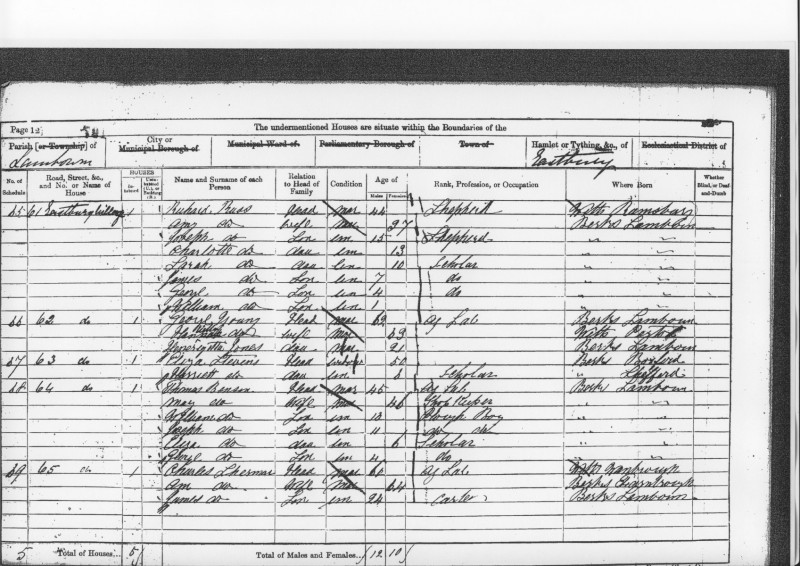 Page 12
The undermentioned Houses are situate within the Boundaries of the
Parish [or Township] of City or Municipal Borough of Municipal Ward of Parliamentary Borough of Town of Hamlet or Tything, &c., of Ecclesiastical District of
Lambourn Eastbury
No. of Schedule Road, Street, &c., and No. or Name of House HOUSES Inhabited Uninhabited (U.), or Building (B.) Name and Surname of each Person Relation to Head of Family Condition Age of Males Females Rank, Profession, or Occupation Where Born Whether Blind, or Deaf-and-Dumb
85 61 Eastbury village 1 Richard Head Mar 44 Shepherd Wilts Ramsbury
Amy do Wife Mar 37 Berks Lambourn
Joseph do Son un 15 Shepherd " "
Charlotte do dau un 13 " "
Sarah do dau un 10 Scholar " "
James do Son un 7 do " "
do Son un 4 do " "
William do Son un 1 " "
86 62 do 1 George Young Head Mar 69 Ag Lab Berks Lambourn
do Wife Mar Wilts
Henrietta Jones dau Mar 21 Berks Lambourn
87 63 do 1 Eliza Stevens Head 50 Berks Boxford
Harriett do dau un 8 Scholar " Shefford
88 64 do 1 Thomas Head Mar 45 Ag Lab Berks Lambourn
Mary do Wife Mar 46 " "
William do Son un 13 Plough Boy " "
Joseph do Son un 11 do do " "
Eliza do dau un 6 Scholar " "
do Son un 4 do " "
89 65 do 1 Charles Head Mar 60 Ag Lab Wilts
Ann do Wife Mar 64 Berks
James do Son un 24 Carter Berks Lambourn
5 Total of Houses... 5 Total of Males and Females... 12 10